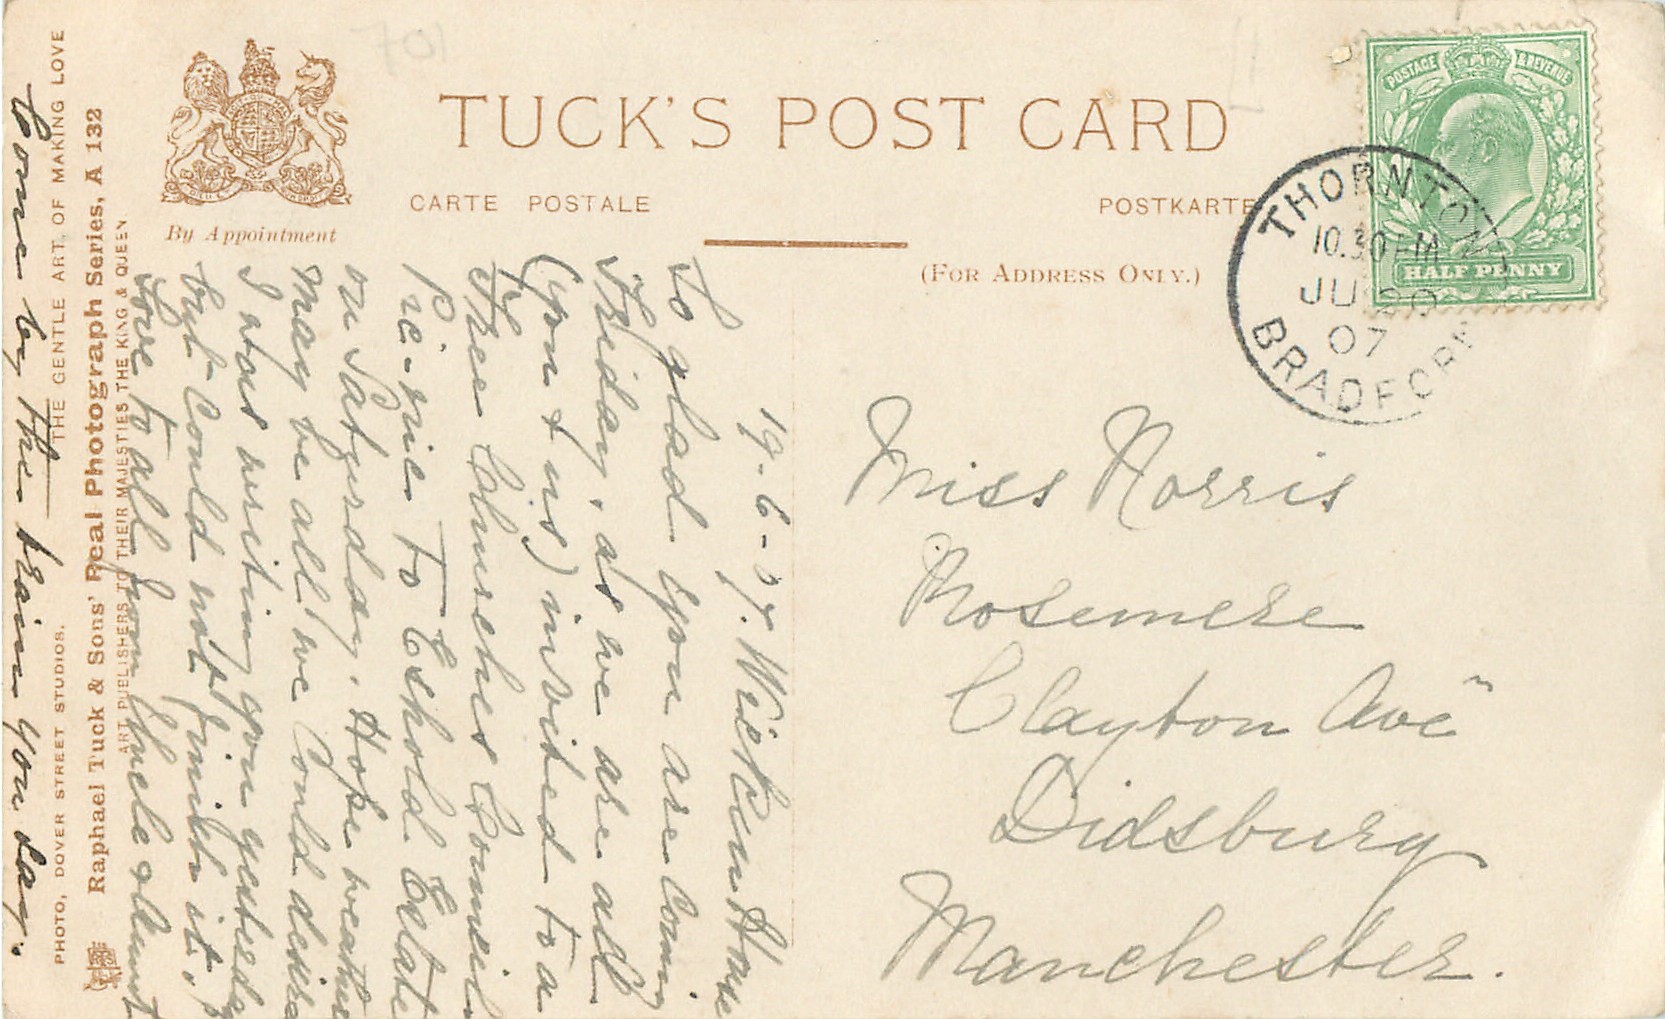 TUCK'S POST CARD
CARTE POSTALE
POSTKARTE
(FOR ADDRESS ONLY.)
By Appointment
POSTAGE & REVENUE
HALF PENNY
THORNTON
10.30 PM
JU 20
07
BRADFORD
Miss Norris
Rosemere
Clayton Ave
Didsbury
Manchester.
19-6-07.
So glad you are coming
Friday, as we are all
(you & us) invited to a
Free Churches Council
Pic-nic to Eshold Estate
on Saturday. Hope weather
may be all we could desire
I was writing you yesterday
but could not finish it.
Love to all from Uncle & Aunt
Come by the train you say.
THE GENTLE ART OF MAKING LOVE
PHOTO, DOVER STREET STUDIOS.
Raphael Tuck & Sons' Real Photograph Series, A 132
ART PUBLISHERS TO THEIR MAJESTIES THE KING & QUEEN